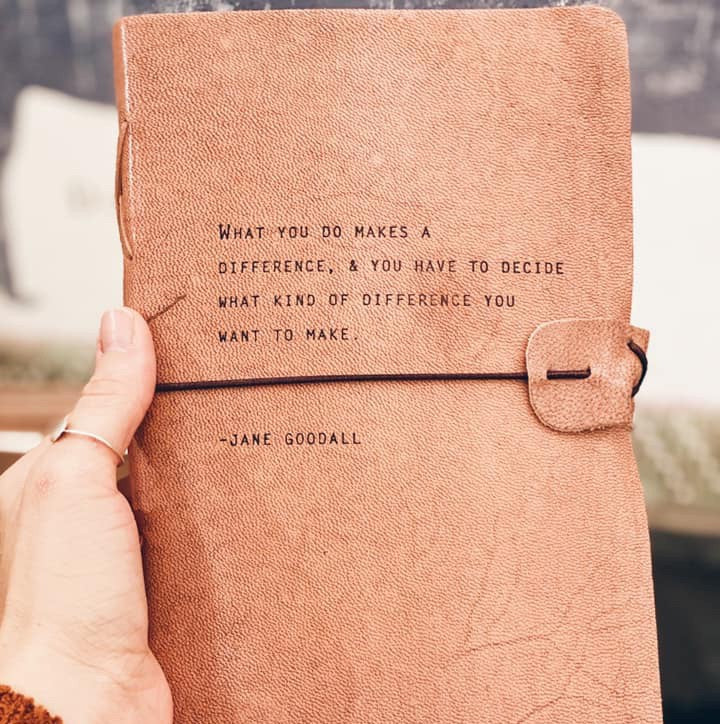 What you do makes a
difference, & you have to decide
what kind of difference you
want to make.
-Jane Goodall